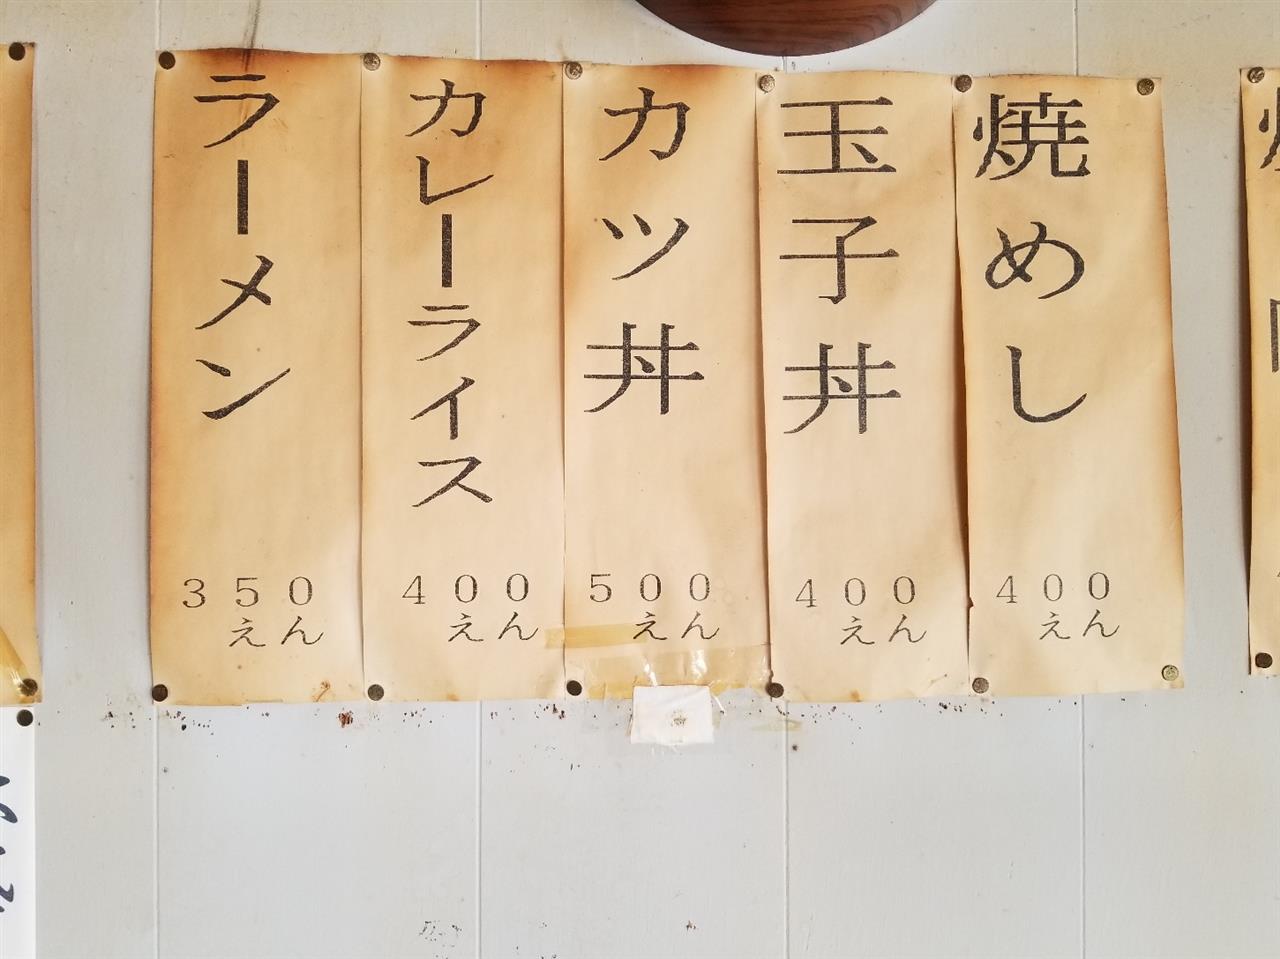 焼めし
400
えん
玉子丼
400
えん
カツ丼
500
えん
カレーライス
400
えん
ラーメン
350
えん